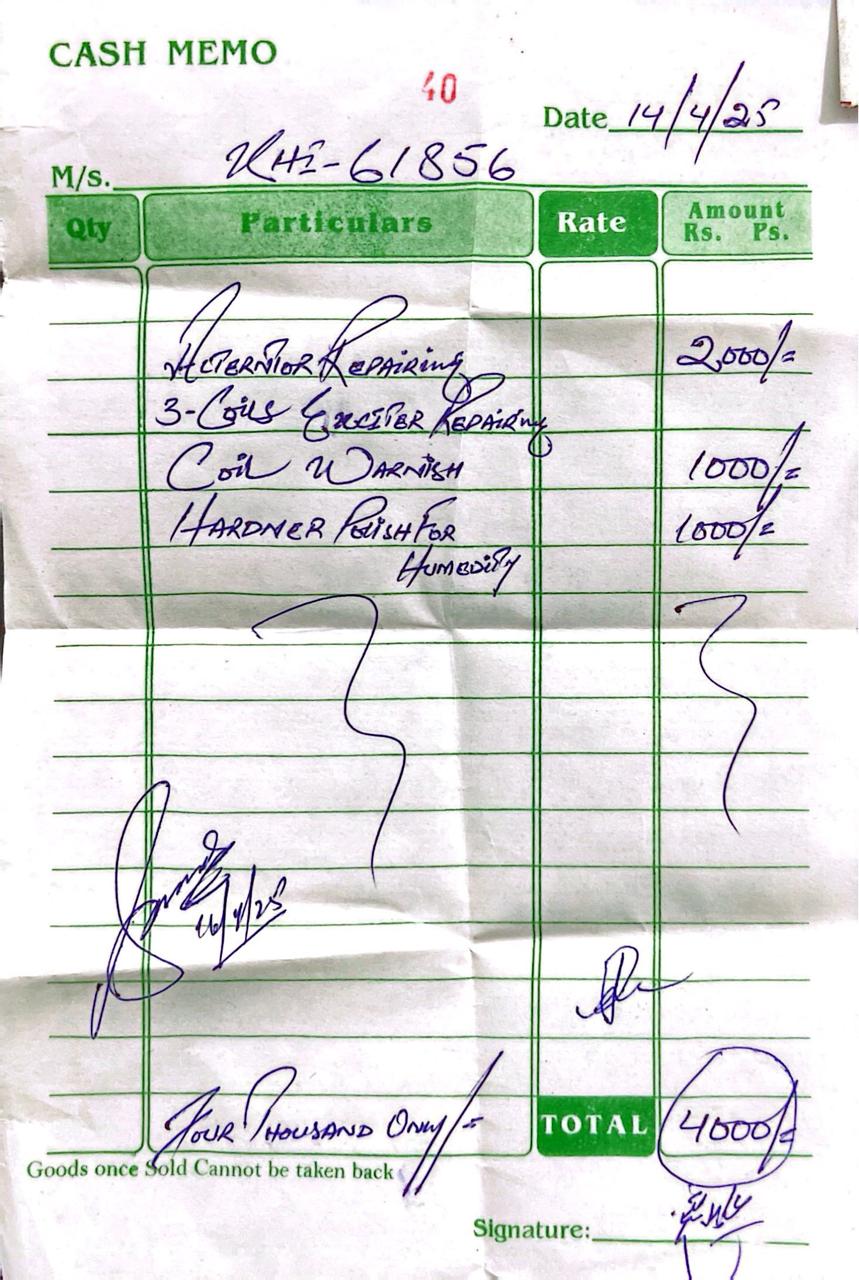 CASH MEMO
40
Date 14/4/25
M/s. KHI-61856
Qty Particulars Rate Amount Rs. Ps.
ALTERNTOR REPAIRING 2,000/=
3-COILS EXCITER REPAIRING
COIL WARNISH 1000/=
HARDNER POLISH FOR 1000/=
HUMEDITY
16/4/25
FOUR THOUSAND ONLY/= TOTAL 4000/=
Goods once Sold Cannot be taken back
Signature: